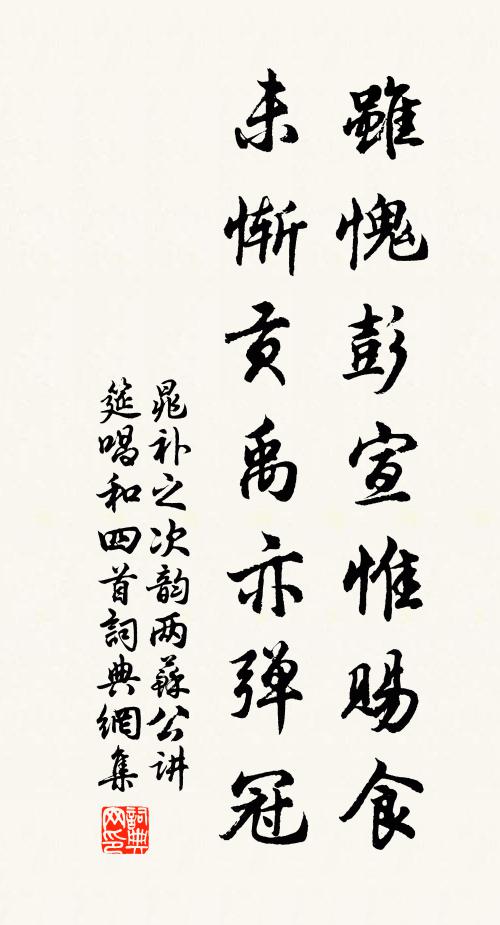 雖愧彭宣惟賜食
未慚貢禹亦彈冠
晁补之次韵两蘇公讲
筵唱和四首詞典網集
詞典
网印